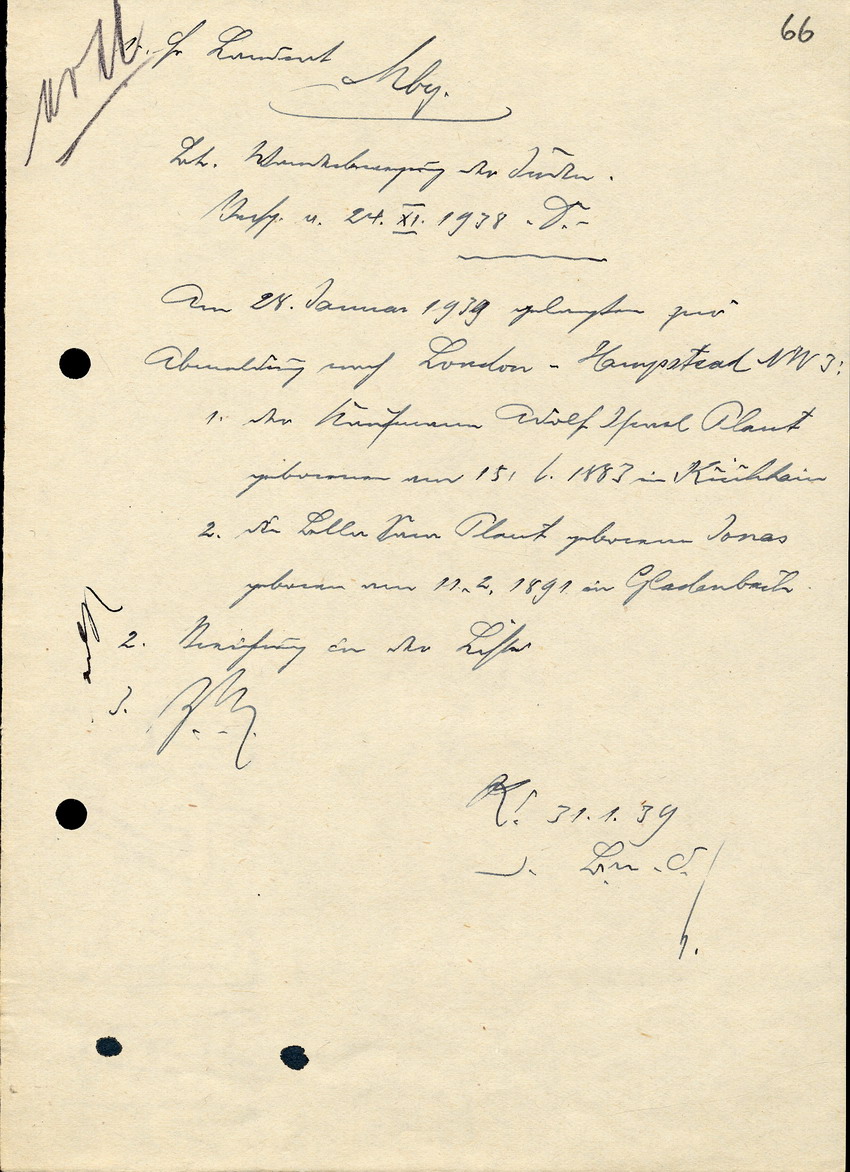 66
1. Hr Landrat
Mbg.
Betr. Wanderbewegung der Juden.
Verfg. v. 24. XI. 1938 -
Am 28. Januar 1939 gelangten zur
Abmeldung nach London - Hampstead NW 3:
1. der Kaufmann Adolf Israel Plaut
geboren am 15. 6. 1883 in Kirchhain
2. die Bella Sara Plaut geborene Jonas
geboren am 11. 2. 1891 in Gladenbach.
2. in der Liste
3.
K. 31.1.39
D. Bm. d.